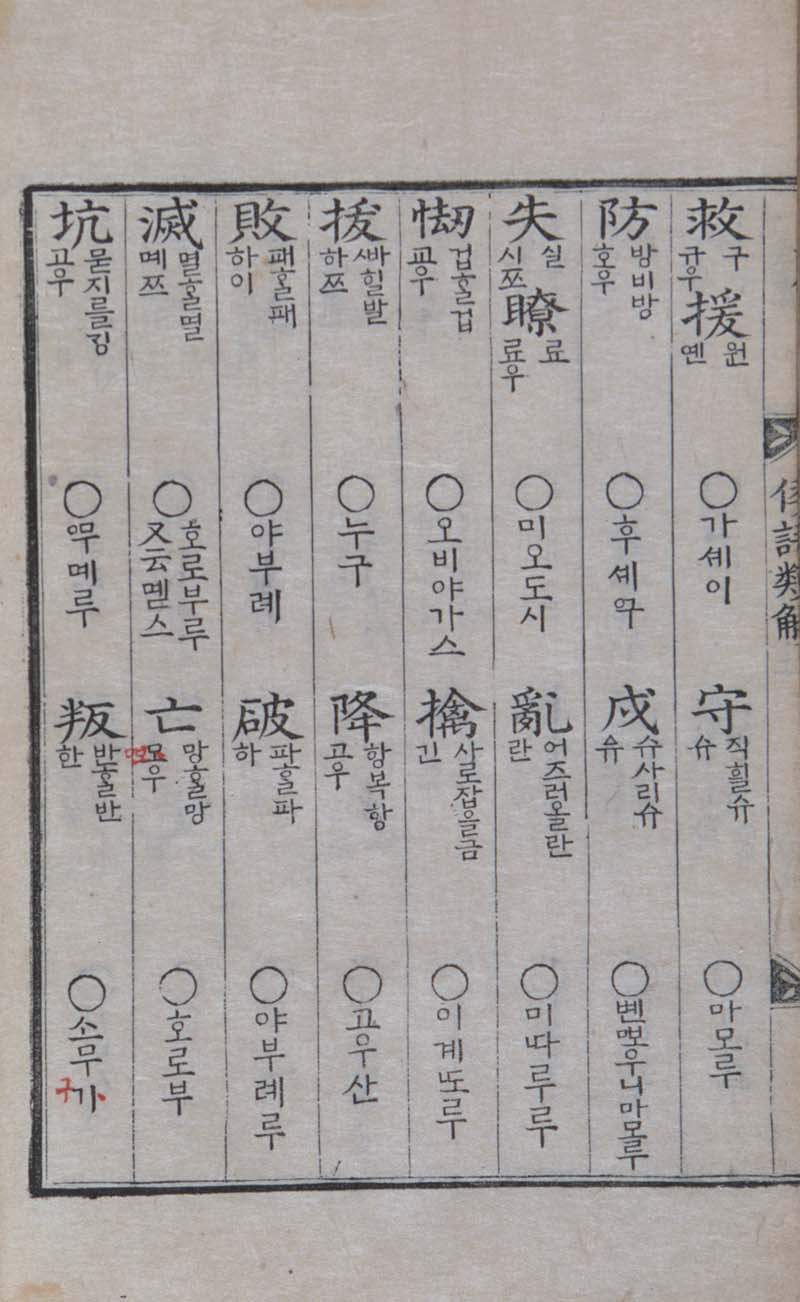 倭語類解
救 구 규우
援 원 옌
○가셰이
守 직힐슈 슈
○마모루
防 방비방 호우
○후셰구
戍 슈사리슈 슈
○볜뽀우니마몰루
失 실 시쯔
瞭 료 료우
○미오도시
亂 어즈러올란 란
○미따루루
㤼 겁홀겁 교우
○오비야가스
擒 사로잡을금 긴
○이계또루
拔 ᄲᅡ힐발 하쯔
○누구
降 항복항 고우
○고우산
敗 패홀패 하이
○야부레
破 파홀파 하
○야부례루
滅 멸홀멸 몌쯔
○호로부루 又云몓스
亡 망홀망 모우
○호로부
坑 묻지를깅 고우
○우메루
叛 반홀반 한
○소무가 구